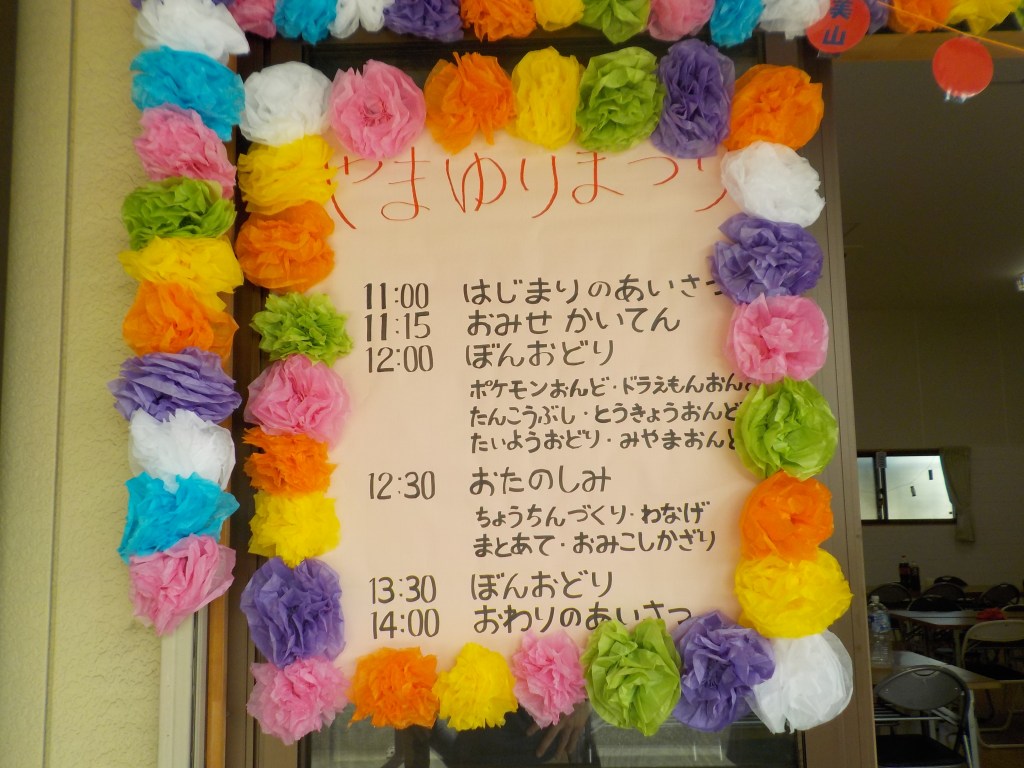 美山
やまゆりまつり
11:00 はじまりのあいさつ
11:15 おみせ かいてん
12:00 ぼんおどり
ポケモンおんど・ドラえもんおんど
たんこうぶし・とうきょうおんど
たいようおどり・みやまおんど
12:30 おたのしみ
ちょうちんづくり・わなげ
まとあて・おみこしかざり
13:30 ぼんおどり
14:00 おわりのあいさつ